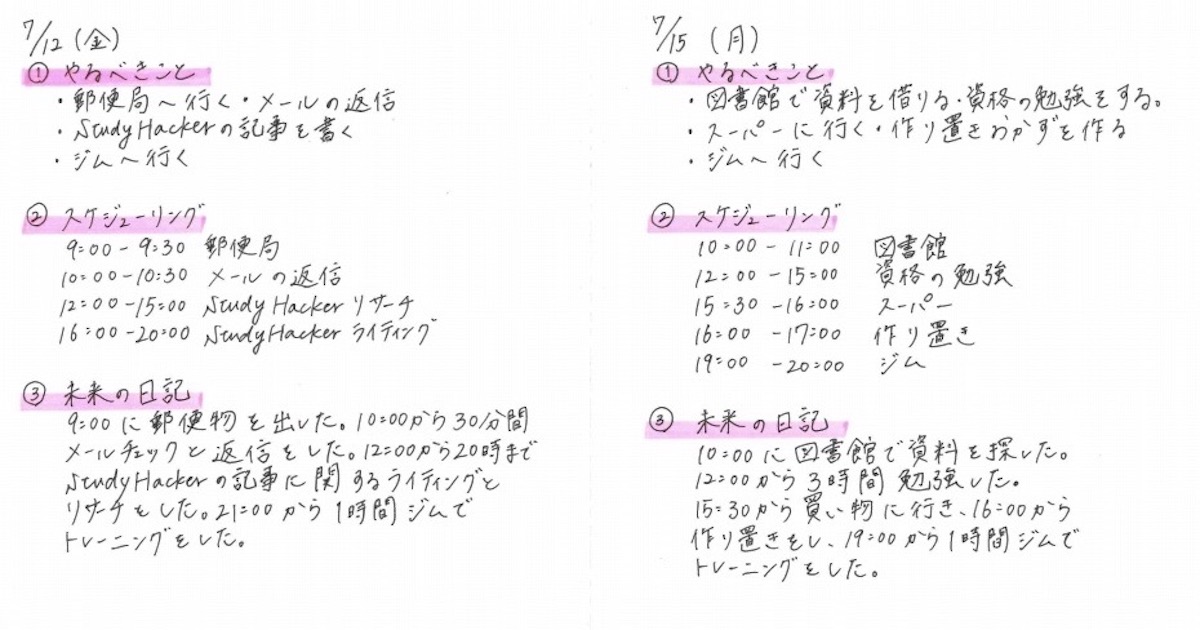 7/12（金）
① やるべきこと
・郵便局へ行く・メールの返信
・StudyHackerの記事を書く
・ジムへ行く
② スケジューリング
9:00 - 9:30 郵便局
10:00 - 10:30 メールの返信
12:00 - 15:00 StudyHacker リサーチ
16:00 - 20:00 StudyHacker ライティング
③ 未来の日記
9:00に郵便物を出した。10:00から30分間
メールチェックと返信をした。12:00から20時まで
StudyHackerの記事に関するライティングと
リサーチをした。21:00から1時間ジムで
トレーニングをした。
7/15（月）
① やるべきこと
・図書館で資料を借りる・資格の勉強をする。
・スーパーに行く・作り置きおかずを作る
・ジムへ行く
② スケジューリング
10:00 - 11:00 図書館
12:00 - 15:00 資格の勉強
15:30 - 16:00 スーパー
16:00 - 17:00 作り置き
19:00 - 20:00 ジム
③ 未来の日記
10:00に図書館で資料を探した。
12:00から3時間勉強した。
15:30から買い物に行き、16:00から
作り置きをし、19:00から1時間ジムで
トレーニングをした。